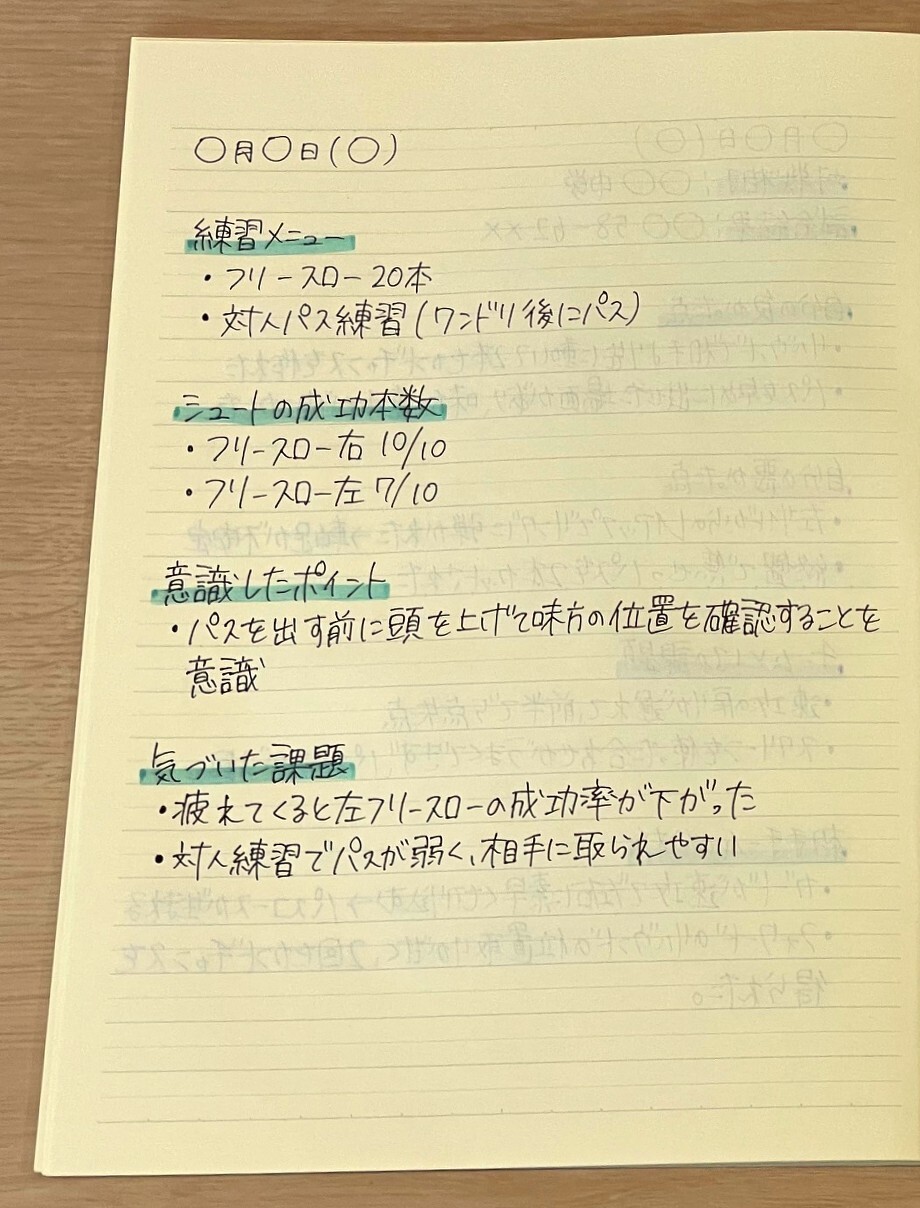 〇月〇日(〇)
練習メニュー
・フリースロー20本
・対人パス練習(ワンドリ後にパス)
シュートの成功本数
・フリースロー右 10/10
・フリースロー左 7/10
意識したポイント
・パスを出す前に頭を上げて味方の位置を確認することを
意識
気づいた課題
・疲れてくると左フリースローの成功率が下がった
・対人練習でパスが弱く、相手に取られやすい